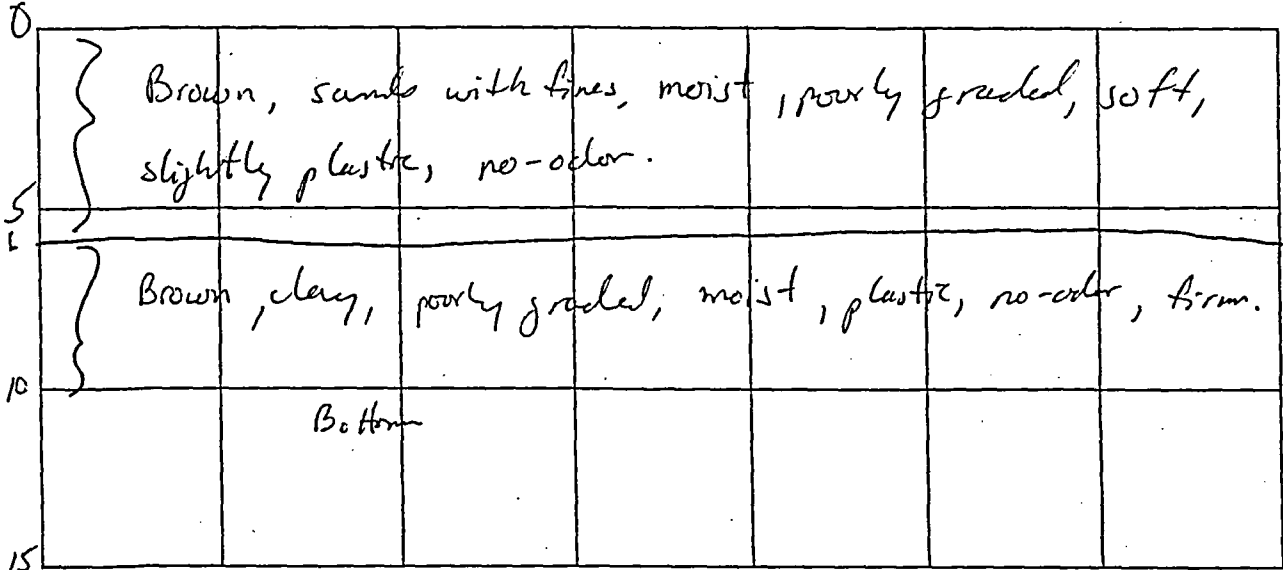 0
Brown, sands with fines, moist, poorly graded, soft,
slightly plastic, no-odor.
5
6
Brown, clay, poorly graded, moist, plastic, no-odor, firm.
10
Bottom
15